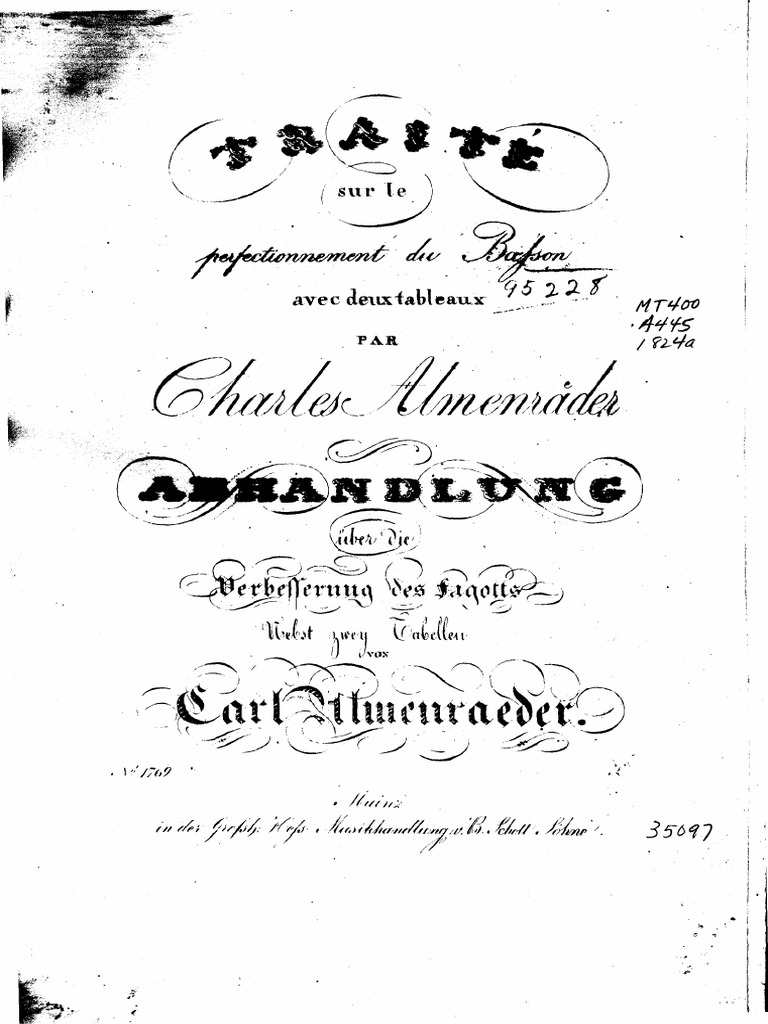 TRAITÉ
sur le
perfectionnement du Baſson
95228
avec deux tableaux
MT400
.A445
1824a
PAR
Charles Almenråder
ABHANDLUNG
über die
Verbeſserung des Fagotts
Nebst zwey Tabellen
von
Carl Almenraeder.
Nº 1769
Mainz
in der Großh: Heſs. Musikhandlung v. B. Schott Söhne.
35097